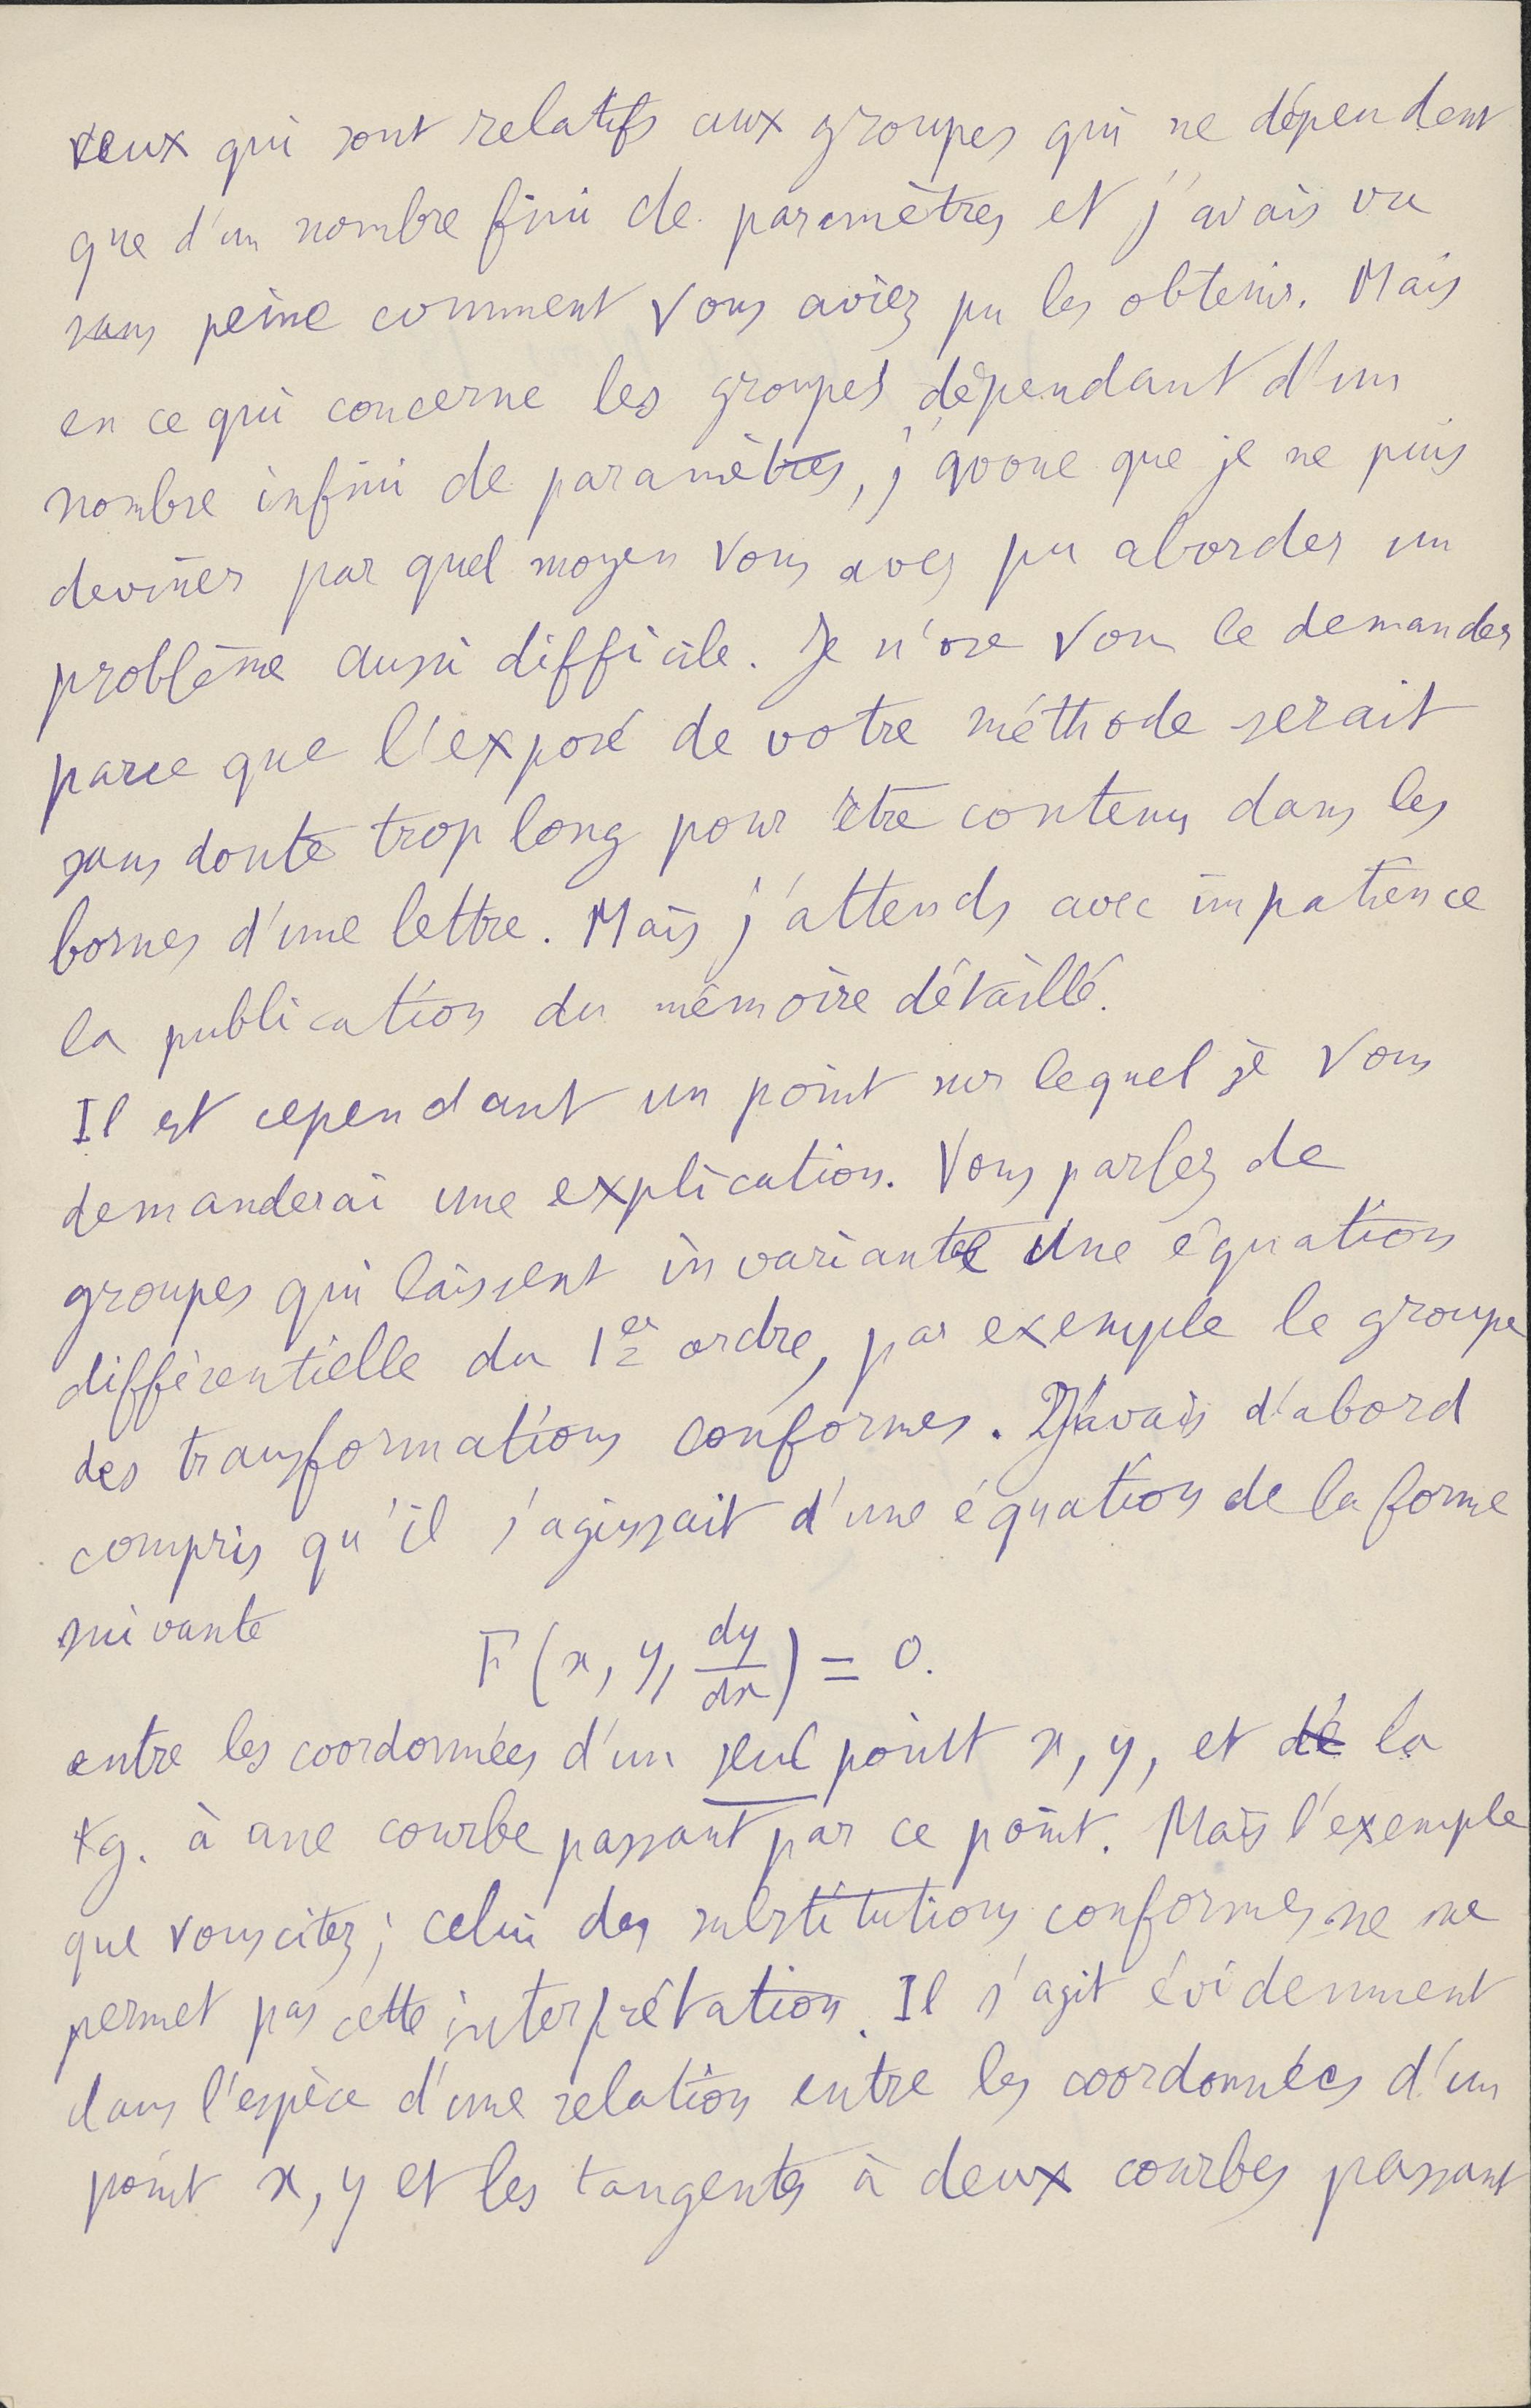 ceux qui sont relatifs aux groupes qui ne dépendent
que d'un nombre fini de paramètres et j'avais vu
sans peine comment vous aviez pu les obtenir. Mais
en ce qui concerne les groupes dépendant d'un
nombre infini de paramètres, j'avoue que je ne puis
deviner par quel moyen vous avez pu aborder un
problème aussi difficile. Je n'ose vous le demander
parce que l'exposé de votre méthode serait
sans doute trop long pour être contenu dans les
bornes d'une lettre. Mais j'attends avec impatience
la publication du mémoire détaillé.
Il est cependant un point sur lequel je vous
demanderai une explication. Vous parlez de
groupes qui laissent invariante une équation
différentielle du 1er ordre, par exemple le groupe
des transformations conformes. J'avais d'abord
compris qu'il s'agissait d'une équation de la forme
suivante
F(x, y, dy/dx) = 0.
entre les coordonnées d'un seul point x, y, et de la
tg. à une courbe passant par ce point. Mais l'exemple
que vous citez; celui des substitutions conformes ne me
permet pas cette interprétation. Il s'agit évidemment
dans l'espèce d'une relation entre les coordonnées d'un
point x, y et les tangentes à deux courbes passant